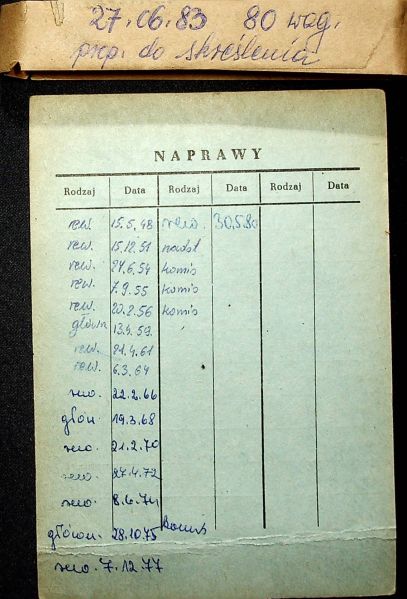 27.06.83 80 wag.
prop. do skreślenia
NAPRAWY
Rodzaj Data Rodzaj Data Rodzaj Data
rew. 15.5.48 rew. 30.5.80
rew. 15.12.51 nadst
rew. 24.6.54 komis
rew. 7.9.55 komis
rew. 20.2.56 komis
główna 13.4.59.
rew. 21.4.61
rew. 6.3.64
rew. 22.2.66
głów. 19.3.68
rew. 21.2.70
rew. 27.4.72
rew. 8.6.74
główn. 28.10.75 komis
rew. 7.12.77